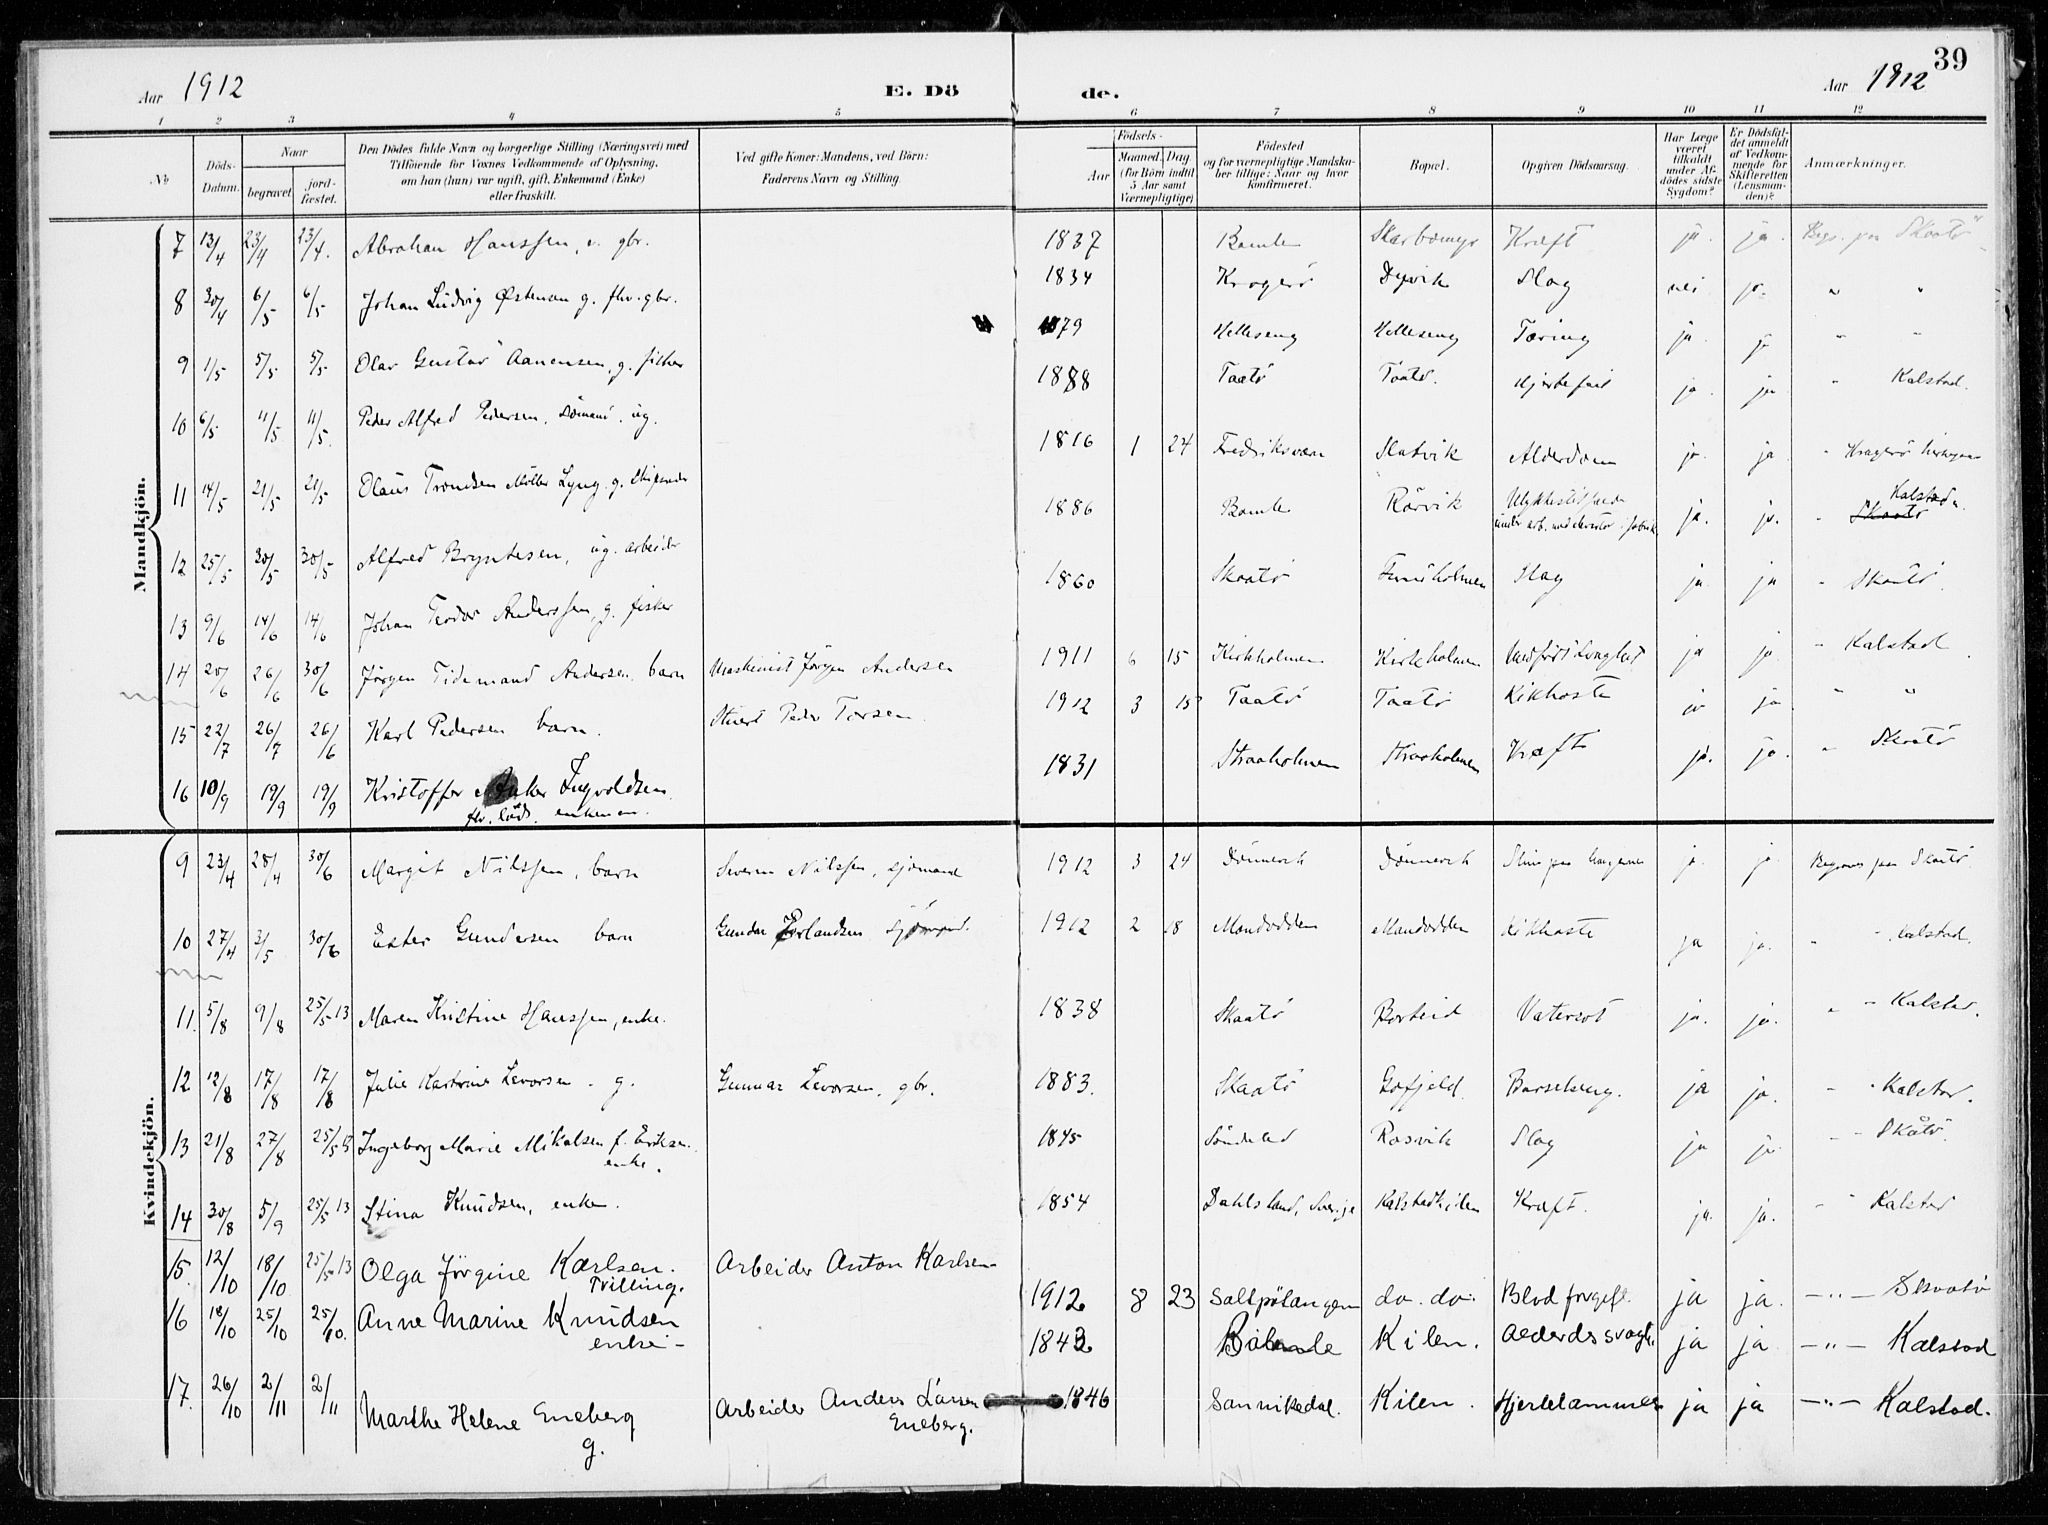 Aar 1912 E. Dö de. Aar 1912 39
1 2 3 4 5 6 7 8 9 10 11 12
No
Döds-Datum.
Naar
begravet.
jordfæstet.
Den Dödes fulde Navn og borgerlige Stilling (Næringsvei) med
Tilföiende for Voxnes Vedkommende af Oplysning,
om han (hun) var ugift, gift, Enkemand (Enke)
eller fraskilt.
Ved gifte Koner: Mandens, ved Börn:
Faderens Navn og Stilling.
Födsels-
Aar
Maaned. Dag.
(for Börn indtil
5 Aar samt
Værnepligtige)
Födested
og for værnepligtige Mandskaber tillige: Naar og hvor
konfirmeret.
Bopæl.
Opgiven Dödsaarsag.
Har Læge
været
tilkaldt
under Afdödes sidste
Sygdom?
Er Dödsfaldet anmeldt
af Vedkommende for
Skifteretten
(Lensmanden)?
Anmærkninger.
Mandkjön.
7 13/4 23/4 23/4. Abraham Hanssen, v. gbr. 1837 Bamle Kræft ja. ja. Begr. paa Skaatö
8 30/4 6/5 6/5 Johan Ludvig Östensen g. fhv. gbr. 1834 Kragerö Dyvik Slag nei ja. " "
9 1/5 5/5 5/5 Olav Gustav Aanensen, g. fisker 1879 Helleseng Helleseng Tæring ja. ja " "
10 6/5 11/5 11/5. Peder Alfred Pedersen, sömand, ug. 1888 Taatö Taatö. Hjertefeil ja. ja " Kalstad.
11 14/5 21/5 21/5 Olaus Trondsen Möller Lyng. g. Skipsreder 1816 1 24 Fredriksværn Slatvik Alderdom ja. ja " Kragerö
12 25/5 30/5 30/5 Alfred Bryntesen, ug. arbeider 1886 Bamle Rörvik Ulykkestilfælde ja. ja. " Kalstad
Skaatö
13 9/6 14/6 14/6 Johan Teodor Anderssen, g. fisker 1860 Skaatö Furuholmen Slag ja ja " Skaatö.
14 20/6 26/6 30/6 Jörgen Tidemand Andersen, barn Maskinist Jörgen Andersen 1911 6 15 Kirkholmen Kirkholmen Medfödt ja ja " Kalstad
15 22/7 26/7 26/6 Karl Pedersen barn. Stuert Peder Torsen. 1912 3 15 Taatö Taatö Kikhoste ja ja " "
16 10/9 19/9 19/9 Kristoffer Anker Ingvoldsen. 1831 Straaholmen Straaholmen Kræft ja. ja. " Skaatö
fhv. lods. enkem.
Kvindekjön.
9 23/4 28/4 30/6 Margit Nilssen, barn Severin Nilssen, sjömand 1912 3 24 Dönnevik Dönnevik Slim paa lungerne ja. ja. Begraves paa Skaatö
10 27/4 3/5 30/6 Ester Gundersen barn Gunder Erlandsen sjömand. 1912 2 18 Mandodden Mandodden Kikhoste ja ja. " " Kalstad.
11. 5/8 9/8 25/5 13 Maren Kristine Hanssen, enke. 1838 Skaatö Porteid Vatersot ja. ja. " " Kalstad.
12 12/8 17/8 17/8 Julie Katrine Levorsen. g. Gunnar Levorsen, gbr. 1883. Skaatö Gofjeld. Barselseng. ja ja. " " Kalstad.
13 21/8 27/8 25/5 13 Ingeborg Marie Mikalsen f. Eriksen. 1845 Söndeled Rosvik Slag ja ja. " " Skåtö.
enke.
14 30/8 5/9 25/5 13 Stina Knudsen, enke. 1854 Dahlsland, Sverige Kalstadkilen Kræft. ja. ja. " Kalstad
15. 12/10 18/10 25/5 13 Olga Jörgine Karlsen. Arbeider Anton Karlsen 1912 8 23 do. do. Blodforgift. ja ja. —"— Skaatö
Tvilling.
16 18/10 25/10 25/10. Anne Marine Knudsen 1843 Bamle Kilen. Alderdssvagh. ja ja —"— Kalstad
enke -
17. 26/10 2/11 2/11 Marthe Helene Eneberg Arbeider Anders Larsen 1846 Sannikedal. Kilen. Hjertelammelse ja ja —"— Kalstad.
g. Eneberg.